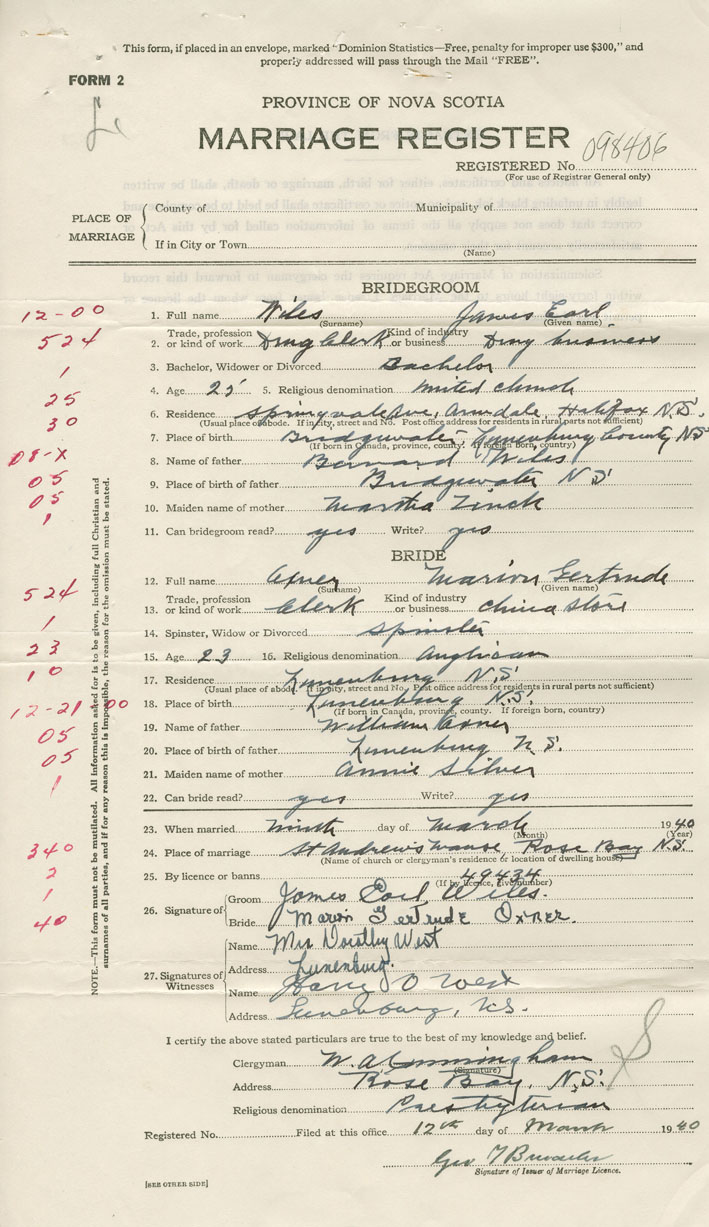 This form, if placed in an envelope, marked "Dominion Statistics—Free, penalty for improper use $300," and
properly addressed will pass through the Mail "FREE".
FORM 2
PROVINCE OF NOVA SCOTIA
MARRIAGE REGISTER
REGISTERED No. 098406
(For use of Registrar General only)
PLACE OF MARRIAGE
County of Municipality of
If in City or Town
(Name)
BRIDEGROOM
12-00 1. Full name Wiles James Earl
(Surname) (Given name)
524 2. Trade, profession or kind of work Drug Clerk Kind of industry or business Drug business
1 3. Bachelor, Widower or Divorced Bachelor
25 4. Age 25 5. Religious denomination United Church
30 6. Residence Springvale Ave, Armdale, Halifax N.S.
(Usual place of abode. If in city, street and No. Post office address for residents in rural parts not sufficient)
7. Place of birth Bridgewater, Lunenburg County NS
(If born in Canada, province, county. If foreign born, country)
08-X 8. Name of father Bernard Wiles
05 9. Place of birth of father Bridgewater N S
05 10. Maiden name of mother Martha Zinck
1 11. Can bridegroom read? yes Write? yes
BRIDE
12. Full name Oxner Marion Gertrude
(Surname) (Given name)
524 13. Trade, profession or kind of work Clerk Kind of industry or business China Store
1 14. Spinster, Widow or Divorced Spinster
23 15. Age 23 16. Religious denomination Anglican
10 17. Residence Lunenburg N.S.
(Usual place of abode. If in city, street and No. Post office address for residents in rural parts not sufficient)
12-21 00 18. Place of birth Lunenburg N.S.
(If born in Canada, province, county. If foreign born, country)
05 19. Name of father William Oxner
05 20. Place of birth of father Lunenburg N.S.
21. Maiden name of mother Annie Silver
1 22. Can bride read? yes Write? yes
23. When married Ninth day of March 1940
(Month) (Year)
340 24. Place of marriage St Andrew's Manse, Rose Bay N.S.
(Name of church or clergyman's residence or location of dwelling house)
2 25. By licence or banns 49434
(If by licence, give number)
1 26. Signature of Groom James Earl Wiles
40 Bride Marion Gertrude Oxner.
27. Signatures of Witnesses
Name Mrs Dorothy West
Address Lunenburg.
Name Harry O West
Address Lunenburg, N.S.
NOTE.—This form must not be mutilated. All information asked for is to be given, including full Christian and
surnames of all parties, and if for any reason this is impossible, the reason for the omission must be stated.
I certify the above stated particulars are true to the best of my knowledge and belief.
Clergyman W. A. Cunningham
(Signature)
Address Rose Bay, N.S.
Religious denomination Presbyterian
Registered No. Filed at this office 12th day of March 1940
Geo
Signature of Issuer of Marriage Licence.
[SEE OTHER SIDE]